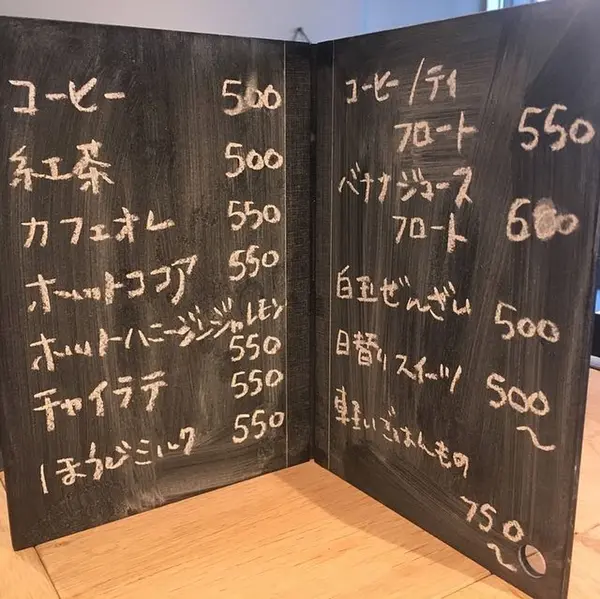 コーヒー 500
紅茶 500
カフェオレ 550
ホットココア 550
ホットハニージンジャーレモン
550
チャイラテ 550
ほうじミルク 550
コーヒー/ティ
フロート 550
バナナジュース
フロート 600
白玉ぜんざい
500
日替りスイーツ
500
~
軽いごはんもの
750
~